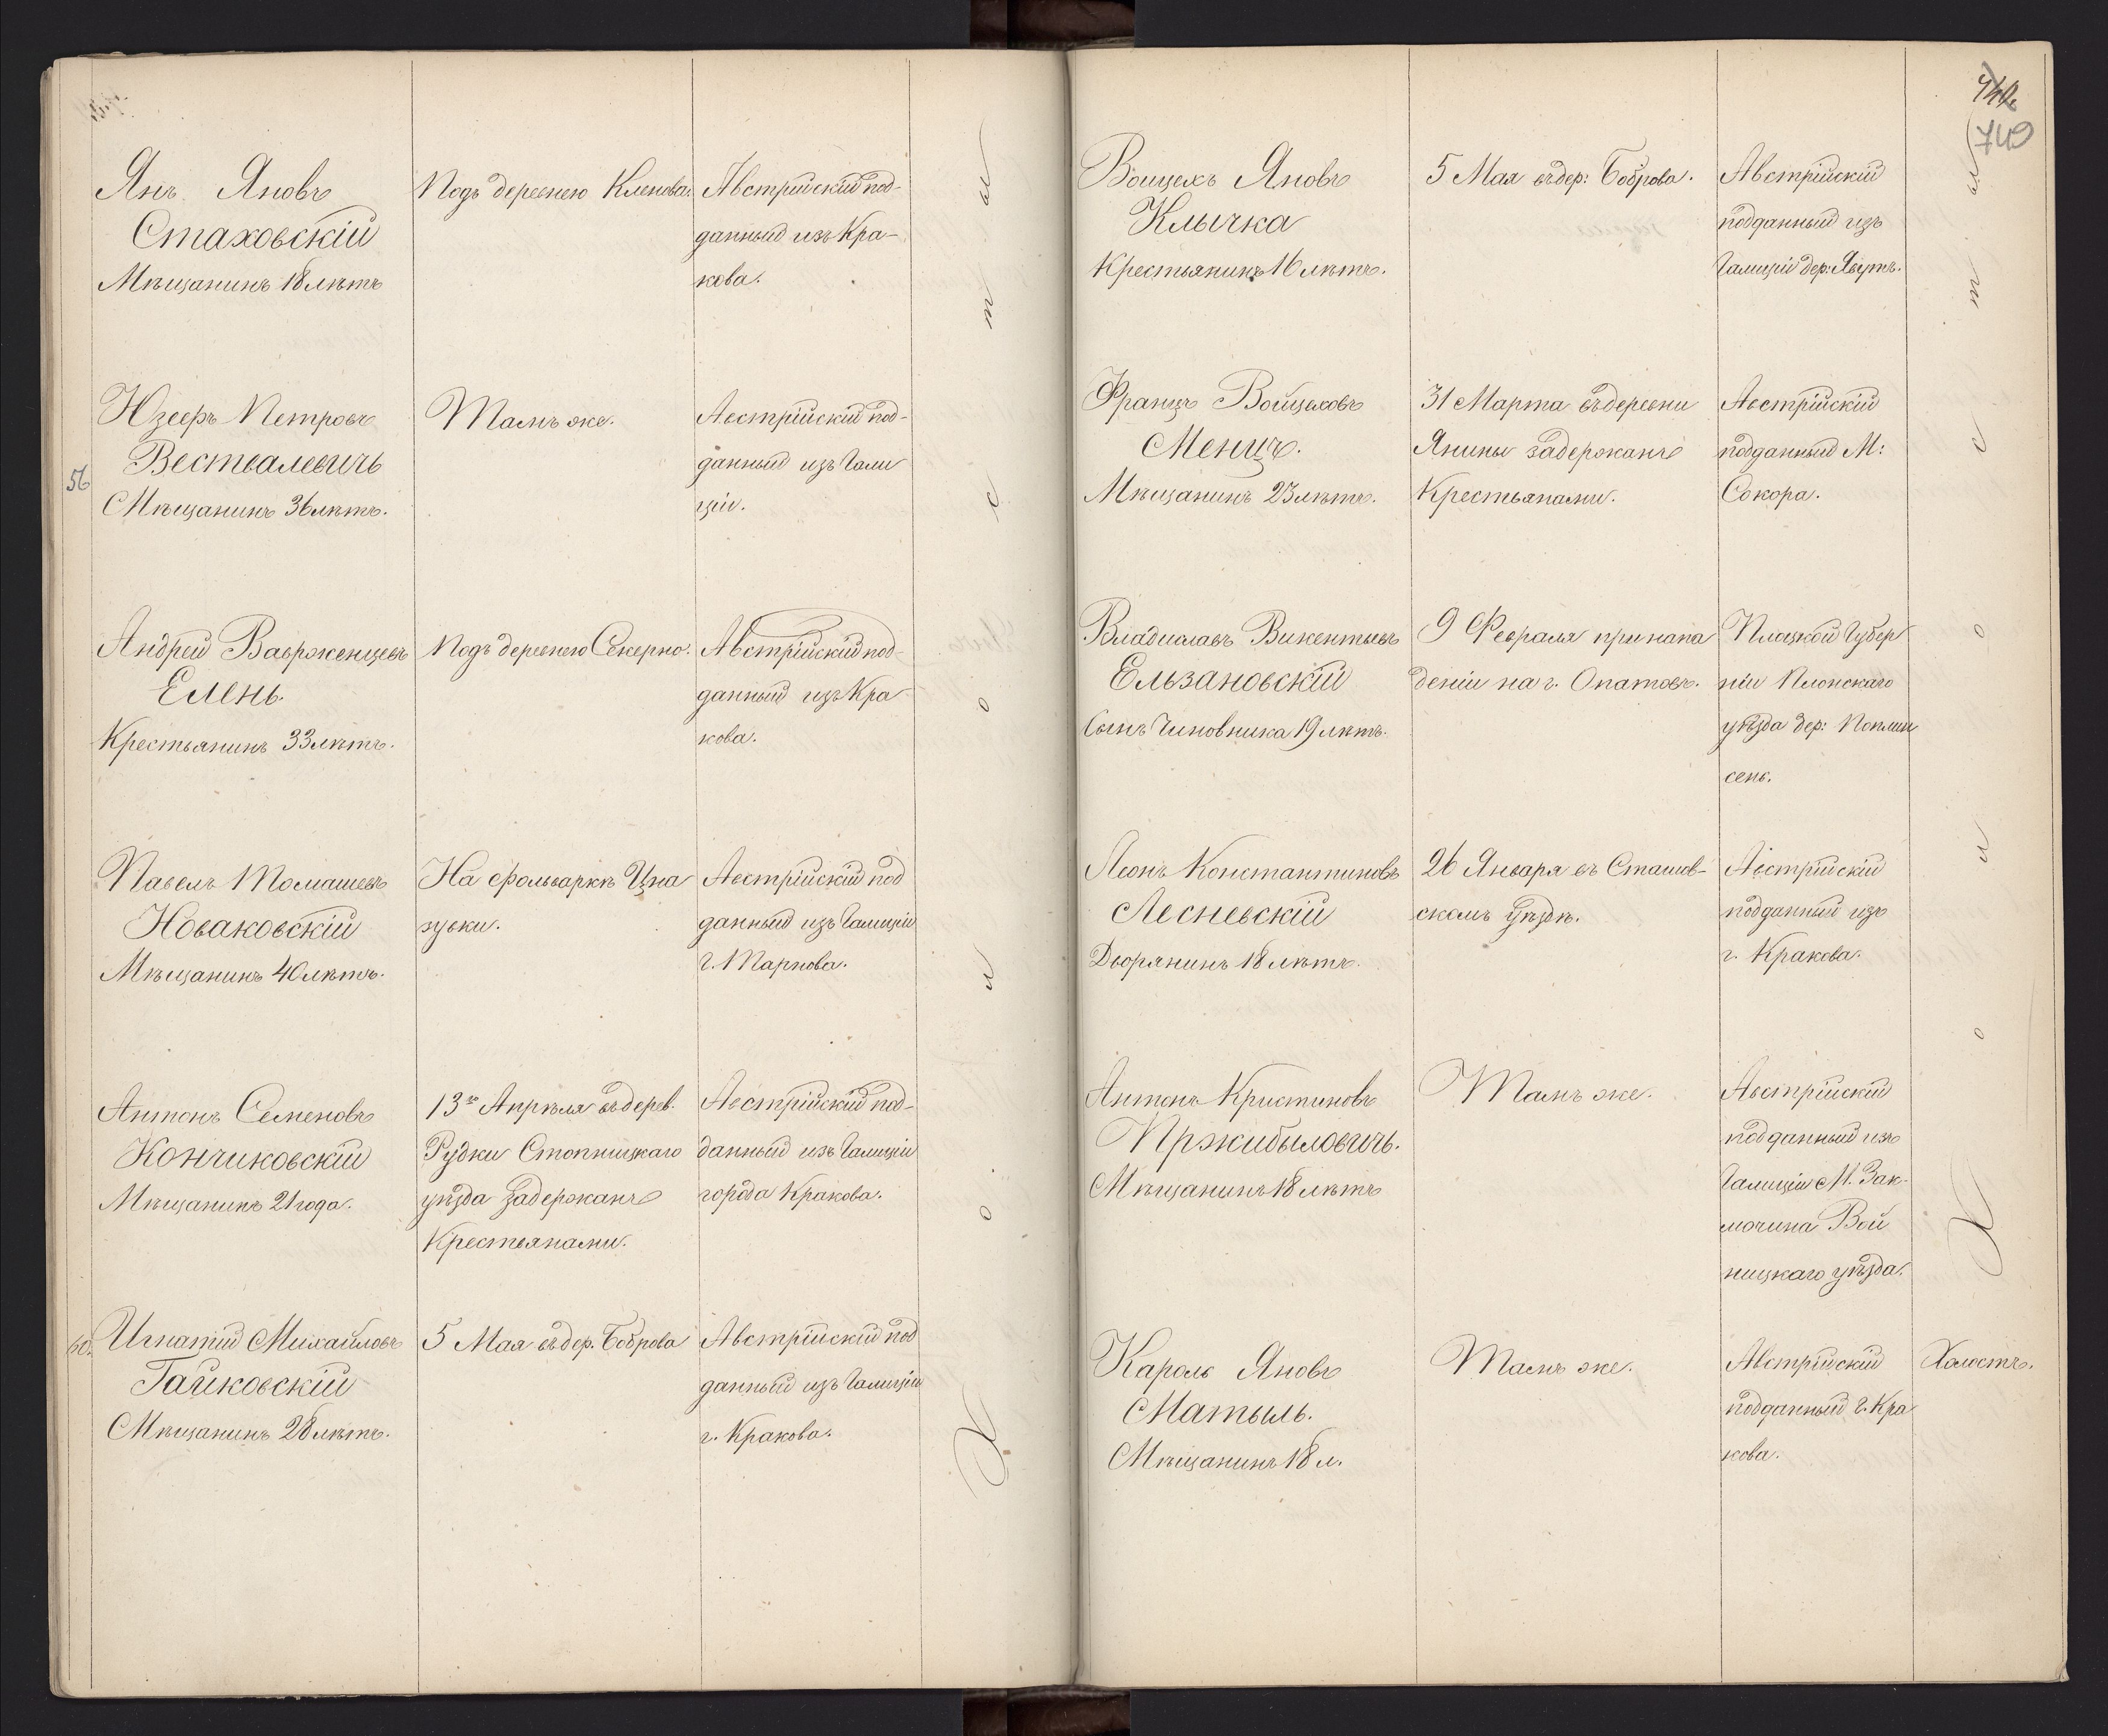 Янъ Яновъ
Стаховскій
Мѣщанинъ 18 лѣтъ
Подъ деревнею Кленова.
Австрійскій под-
данный изъ Кра-
кова.
56
Юзефъ Петровъ
Вествалевичъ
Мѣщанинъ 36 лѣтъ.
Тамъ же.
Австрійскій под-
данный изъ Гали
ціи.
Андрей Вавржинцевъ
Елень.
Крестьянинъ 33 лѣтъ.
Подъ деревнею Секерно.
Австрійскій под-
данный изъ Кра-
кова.
Павелъ Томашевъ
Новаковскій
Мѣщанинъ 40 лѣтъ.
На фольваркѣ
зувки.
Австрійскій под
данный изъ Галиціи
г. Тарнова.
Антонъ Семеновъ
Кончиковскій
Мѣщанинъ 21 года.
13го Апрѣля въ дерев.
Рудки Стопницкаго
уѣзда задержанъ
Крестьянами.
Австрійскій под-
данный изъ Галиціи
города Кракова.
60.
Игнатій Михайловъ
Гайковскій
Мѣщанинъ 28 лѣтъ.
5 Мая въ дер. Боброва
Австрійскій под
данный изъ Галиціи
г. Кракова.
Холосты
749
Войцехъ Яновъ
Клычка
Крестьянинъ 16 лѣтъ.
5 Мая въ дер: Боброва.
Австрійскій
подданный изъ
Галиціи дер:
Францъ Войцеховъ
Менцъ.
Мѣщанинъ 23 лѣтъ.
31 Марта въ деревни
Янины задержанъ
Крестьянами.
Австрійскій
подданный М:
Сокора.
Владиславъ Викентьевъ
Ельзановскій
Сынъ Чиновника 19 лѣтъ.
9 Февраля при напа
деніи на г. Опатовъ.
Плоцкой Губер
ніи Плонскаго
уѣзда дер:
сень.
Леонъ Константиновъ
Лесневскій
Дворянинъ 18 лѣтъ.
26 Января въ Сташов-
скомъ уѣздѣ.
Австрійскій
подданный изъ
г. Кракова.
Антонъ Кристиновъ
Пржибыловичъ.
Мѣщанинъ 18 лѣтъ
Тамъ же.
Австрійскій
подданный изъ
Галиціи М. Зак-
лючина Вой
ницкаго уѣзда.
Холосты
Кароль Яновъ
Матыль.
Мѣщанинъ 18 л.
Тамъ же.
Австрійскій
подданный г. Кра
кова.
Холостъ.